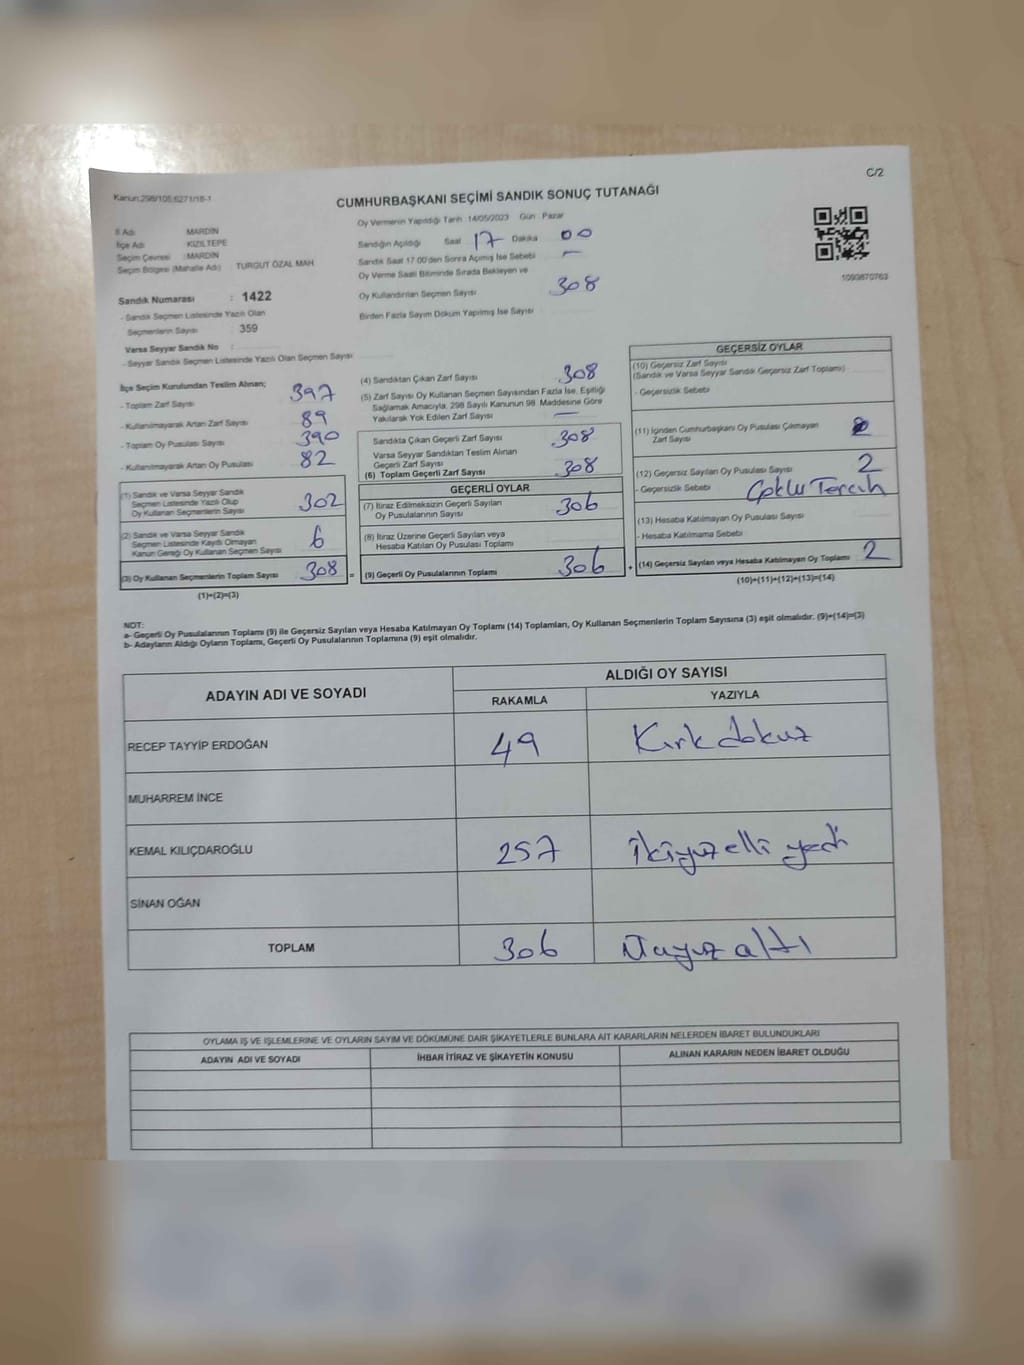 C/2
Kanun:298/105,6271/18-1
CUMHURBAŞKANI SEÇİMİ SANDIK SONUÇ TUTANAĞI
İl Adı : MARDİN
İlçe Adı : KIZILTEPE
Seçim Çevresi : MARDİN
Seçim Bölgesi (Mahalle Adı) : TURGUT ÖZAL MAH
Sandık Numarası : 1422
- Sandık Seçmen Listesinde Yazılı Olan
Seçmenlerin Sayısı : 359
Varsa Seyyar Sandık No :
- Seyyar Sandık Seçmen Listesinde Yazılı Olan Seçmen Sayısı
Oy Vermenin Yapıldığı Tarih 14/05/2023 Gün : Pazar
Sandığın Açıldığı Saat 17 Dakika 00
Sandık Saat 17:00'den Sonra Açımış İse Sebebi —
Oy Verme Saati Bitiminde Sırada Bekleyen ve
Oy Kullandırılan Seçmen Sayısı 308
Birden Fazla Sayım Döküm Yapılmış İse Sayısı
1093870763
İlçe Seçim Kurulundan Teslim Alınan;
- Toplam Zarf Sayısı 397
- Kullanılmayarak Artan Zarf Sayısı 89
- Toplam Oy Pusulası Sayısı 390
- Kullanılmayarak Artan Oy Pusulası 82
(1) Sandık ve Varsa Seyyar Sandık
Seçmen Listesinde Yazılı Olup
Oy Kullanan Seçmenlerin Sayısı 302
(2) Sandık ve Varsa Seyyar Sandık
Seçmen Listesinde Kayıtlı Olmayan
Kanun Gereği Oy Kullanan Seçmen Sayısı 6
(3) Oy Kullanan Seçmenlerin Toplam Sayısı 308 =
(1)+(2)=(3)
(4) Sandıktan Çıkan Zarf Sayısı 308
(5) Zarf Sayısı Oy Kullanan Seçmen Sayısından Fazla İse, Eşitliği
Sağlamak Amacıyla, 298 Sayılı Kanunun 98. Maddesine Göre
Yakılarak Yok Edilen Zarf Sayısı —
Sandıkta Çıkan Geçerli Zarf Sayısı 308
Varsa Seyyar Sandıktan Teslim Alınan
Geçerli Zarf Sayısı
(6) Toplam Geçerli Zarf Sayısı 308
GEÇERLİ OYLAR
(7) İtiraz Edilmeksizin Geçerli Sayılan
Oy Pusulalarının Sayısı 306
(8) İtiraz Üzerine Geçerli Sayılan veya
Hesaba Katılan Oy Pusulası Toplamı
(9) Geçerli Oy Pusulalarının Toplamı 306 +
GEÇERSİZ OYLAR
(10) Geçersiz Zarf Sayısı
(Sandık ve Varsa Seyyar Sandık Geçersiz Zarf Toplamı)
- Geçersizlik Sebebi
(11) İçinden Cumhurbaşkanı Oy Pusulası Çıkmayan
Zarf Sayısı
(12) Geçersiz Sayılan Oy Pusulası Sayısı 2
- Geçersizlik Sebebi Çoklu Tercih
(13) Hesaba Katılmayan Oy Pusulası Sayısı
- Hesaba Katılmama Sebebi
(14) Geçersiz Sayılan veya Hesaba Katılmayan Oy Toplamı 2
(10)+(11)+(12)+(13)=(14)
NOT:
a- Geçerli Oy Pusulalarının Toplamı (9) ile Geçersiz Sayılan veya Hesaba Katılmayan Oy Toplamı (14) Toplamları, Oy Kullanan Seçmenlerin Toplam Sayısına (3) eşit olmalıdır. (9)+(14)=(3)
b- Adayların Aldığı Oyların Toplamı, Geçerli Oy Pusulalarının Toplamına (9) eşit olmalıdır.
ADAYIN ADI VE SOYADI
ALDIĞI OY SAYISI
RAKAMLA YAZIYLA
RECEP TAYYİP ERDOĞAN 49 Kırk dokuz
MUHARREM İNCE
KEMAL KILIÇDAROĞLU 257 ikiyüz elli yedi
SİNAN OĞAN
TOPLAM 306 Üçyüz altı
OYLAMA İŞ VE İŞLEMLERİNE VE OYLARIN SAYIM VE DÖKÜMÜNE DAİR ŞİKAYETLERLE BUNLARA AİT KARARLARIN NELERDEN İBARET BULUNDUKLARI
ADAYIN ADI VE SOYADI İHBAR İTİRAZ VE ŞİKAYETİN KONUSU ALINAN KARARIN NEDEN İBARET OLDUĞU